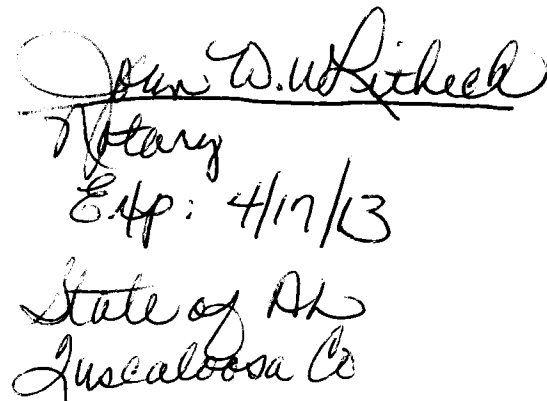 W. Whitheck
Notary
Exp: 4/17/13
State of AL
Tuscaloosa Co